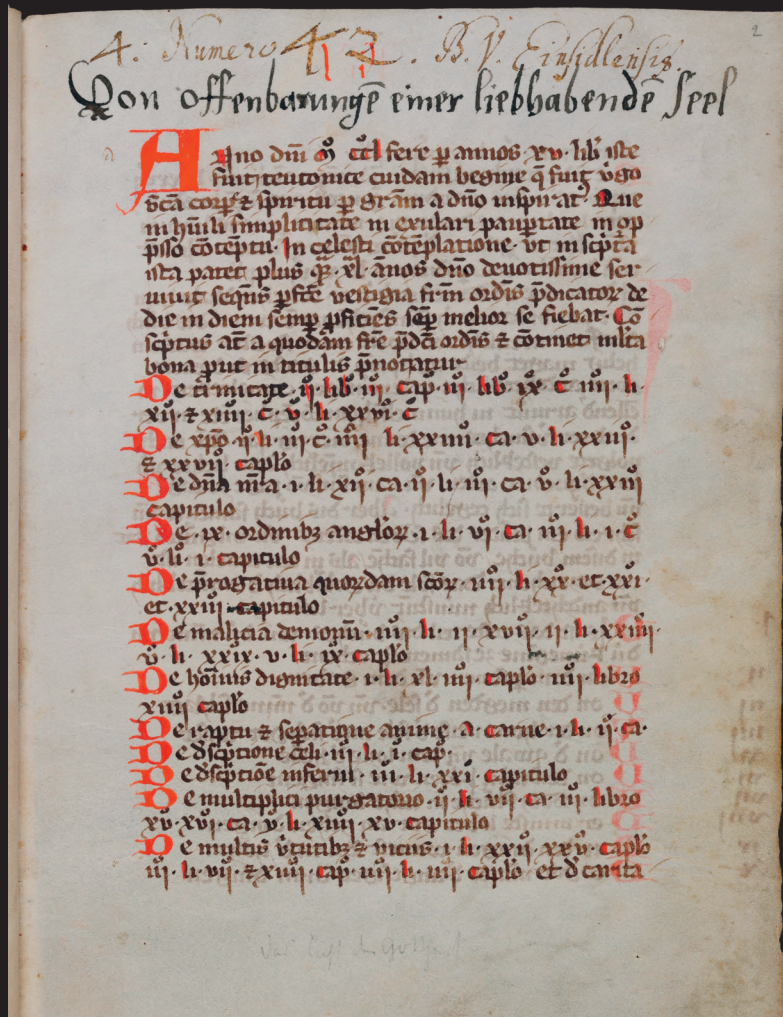 2
4. Numero 42. B. V. Einsidlensis.
Von offenbarungē einer liebhabendē Seel
Anno dn̄i m̊ ccl fere ꝑ annos xv lib̾ iste
fuit teutonice cuidam begine q̄ fuit v̾go
sc̄a corpe ⁊ spiritu ꝑ grām a dn̄o inspirat᷒ Que
in hūili simplicitate in exulari paupertate in op
p̄sso cōtēptu. In celesti cōtēplatione. vt in sc̾pta
ista patet plus qͣ xl annos dn̄o deuotissime ser
uiuit sequēs ꝑfc̄e vestigia fr̄m ordīs p̄dicatoꝝ de
die in diem semꝑ ꝑficiēs seꝑ melior se fiebat. Cō
sc̾ptus at̄ a quodam fr̄e p̄dc̄i ordīs ⁊ cōtinet mlta
bona put in titulis p̄notatur
De t̾nitate. ij. lib̾. iij. cap. iij lib̾ ix c̄ iiij. li.
xij. ⁊ xiiij. c̄. v. li. xxvi. c̄
De xp̄o. ij. li. iij c̄. iiij li. xxiiij. ca. v. li. xxiij.
⁊ xxvij. caplo
De dn̄a nr̄a. i. li. xxij. ca. ij. li. iij. ca. v. li. xxiij
capitulo
De. ix. ordinibꝫ angloꝝ. i. li. vi. ca. iij. li. i. c̄
v. li. i. capitulo
De p̄rogatiua quordam sc̄oꝝ. iiij. li. xx. et. xxi.
et. xxiij. capitulo
De malicia demonū. iiij. li. ij. xvij. ij. li. xxiiij.
v. li. xxix. v. li. ix. caplo
De hoīnis dignitate. i. li. xl. iiij caplo. iiij. libro
xiiij caplo
De raptu ⁊ separatiōne anime. a. carne. i. li. ij. ca.
De dsc̾ptione celi. iij. li. i. cap.
De dsc̾ptiōe inferni. iij. li. xxi. capitulo
De multiplici purgatorio. ij. li. vij. ca. iij. libro
xv. xvi. ca. v. li. xiiij. xv. capitulo
De multis v̾tutibꝫ ⁊ vicijs. i. li. xxij. xxv. caplo
iij. li. vij. ⁊ xiiij. cap. iiij. li. iiij. caplo et d̾ carita